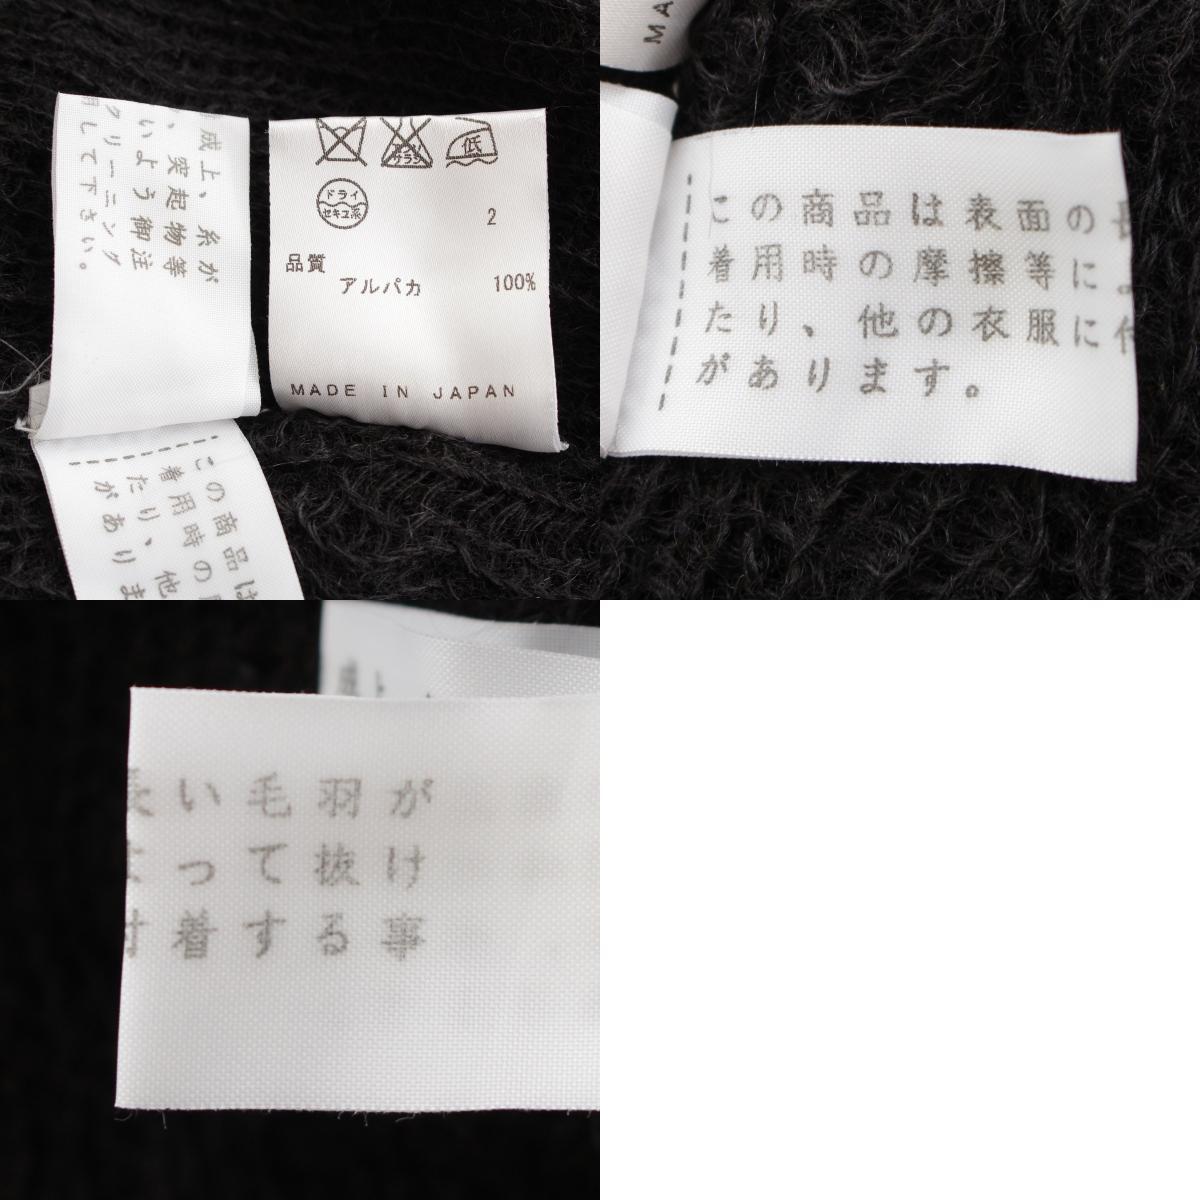 成上、糸が
、突起物等
いよう御注
クリーニング
して下さい。
エンソ
サラシ
低
ドライ
セキユ系
2
品質
アルパカ 100%
MADE IN JAPAN
この商品は
着用時の
たり、他
があります
MA
この商品は表面の長
着用時の摩擦等によ
たり、他の衣服に付
があります。
長い毛羽が
よって抜け
付着する事